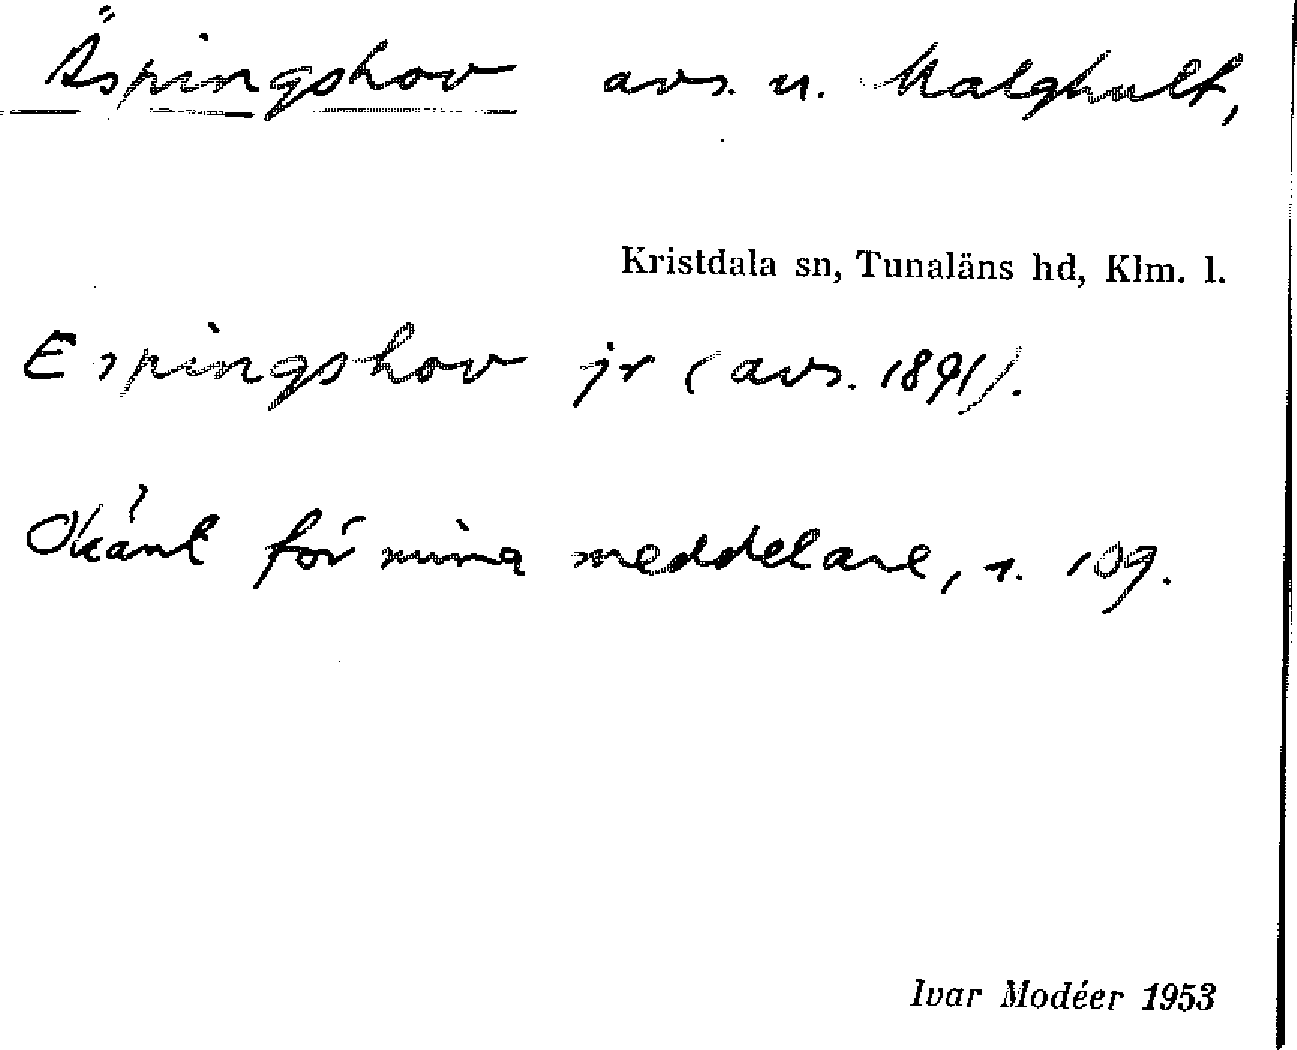 Äspingshov avs. u. Malghult,
Kristdala sn, Tunaläns hd, Klm. l.
Espingshov jr (avs. 1891).
Okänt för mina meddelare, s. 109.
Ivar Modéer 1953